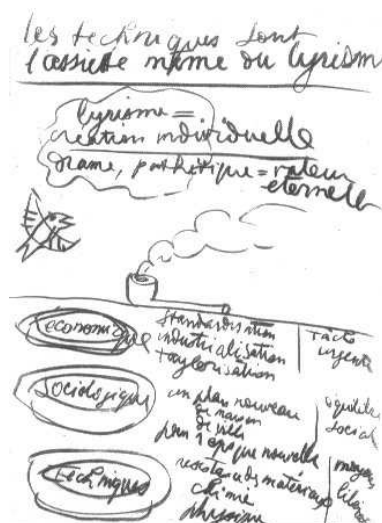 les techniques sont
l'assiette même du lyrism
lyrisme =
création individuelle
drame, pathétique = valeur
éternelle
économique
standardisation
industrialisation
taylorisation
tâche
urgente
sociologique
un plan nouveau
de maison
de ville
pour 1 époque nouvelle
équilibre
social
techniques
résistance des matériaux
chimie
physique
moyens